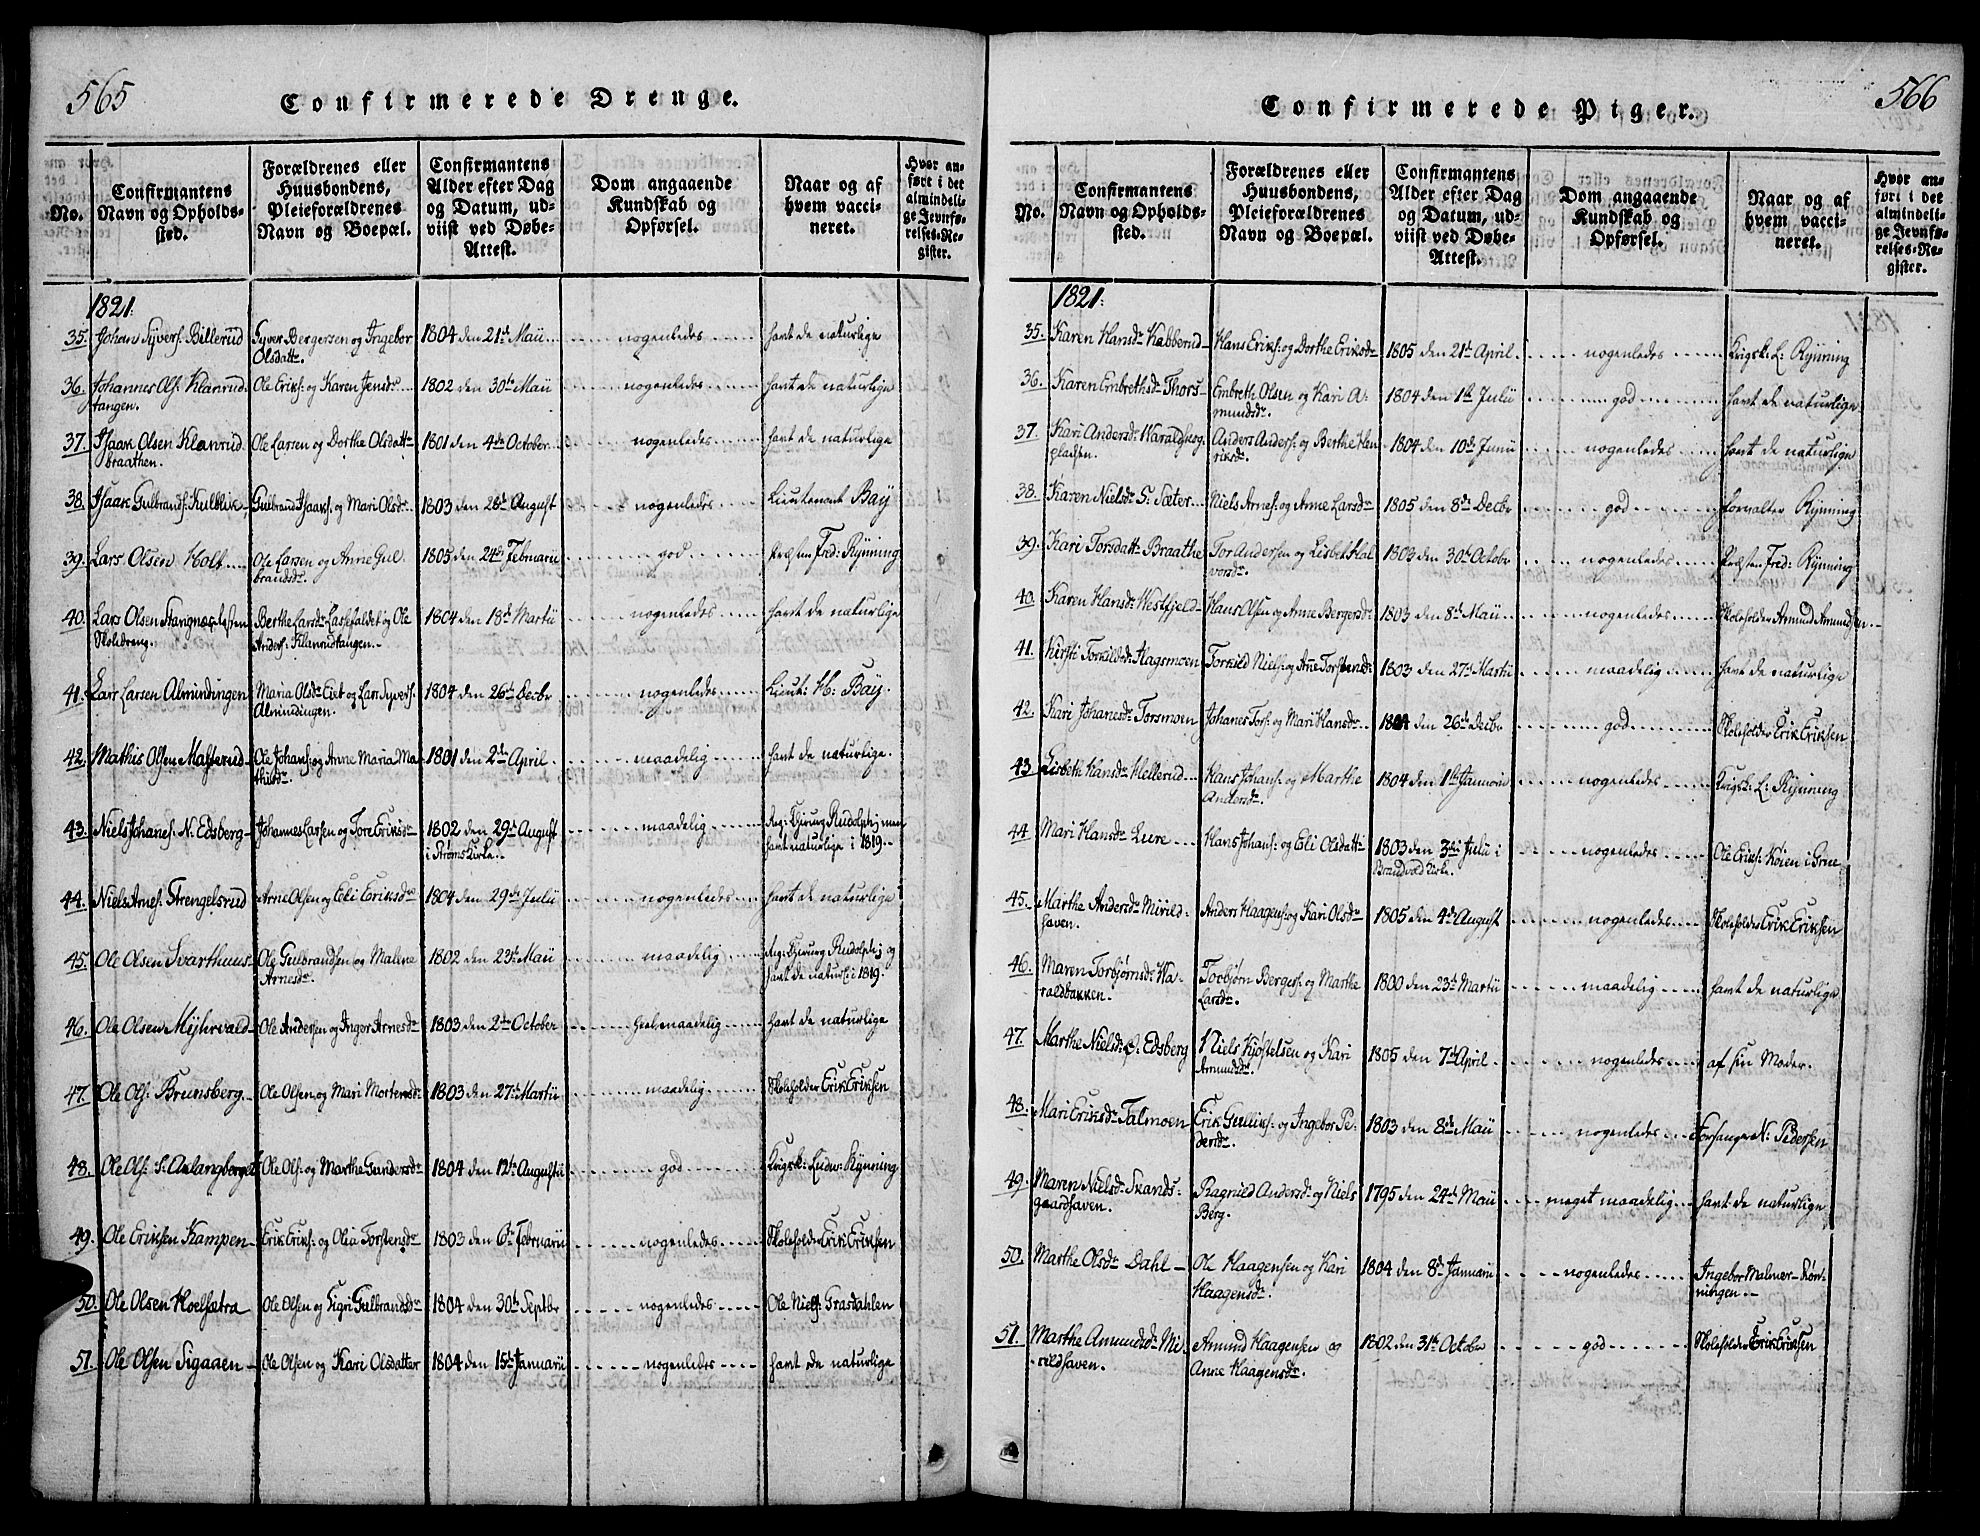 565
Confirmerede Drenge.
No.
Confirmantens Navn og Opholdssted.
Forældrenes eller Huusbondens, Pleieforældrenes Navn og Boepæl.
Confirmantens Alder efter Dag og Datum, udviist ved Døbe-Attest.
Dom angaaende Kundskab og Opførsel.
Naar og af hvem vaccineret.
Hvor anført i det almindelige Jevnførelses-Register.
1821.
35. Johan Syvers. Billerud Syver Bergersen og Ingebor Olsdattr. 1804 den 21de Maii nogenledes havt de naturlige
36. Johannes Ols. Klanrudtangen. Ole Eriks. og Karen Jensdr. 1802 den 30te Maii nogenledes havt de naturlige
37. Isaak Olsen Klanrudbraathen. Ole Larsen og Dorthe Olsdattr. 1801 den 4de October nogenledes havt de naturlige
38. Isaak Gulbrands. Kulblik Gulbrand Isaaks. og Mari Olsdr. 1803 den 28de August nogenledes Lieutenant Bay
39. Lars Olsen Holt Ole Larsen og Anne Gulbrandsdr. 1805 den 24de Februarii god Præsten Fred: Rynning
40. Lars Olsen Skoledreng. Berthe Larsdr. og Ole Anders. Klanrudtangen. 1804 den 18de Martii nogenledes havt de naturlige
41. Lars Larsen Almindingen Maria Olsdr. og Lars Syvers. Almindingen. 1804 den 26de Decbr nogenledes Lieut: H: Bay.
42. Mathis Olsen Masterud Ole Johans. og Anne Maria Mathisdr. 1801 den 2de April maadelig havt de naturlige.
43. Niels Johanes. N. Edsberg Johannes Larsen og Tore Eriksdr. 1802 den 29de August i Strøms Kirke. maadelig Reg: Chirurg Rudolphj men havt naturlige i 1819.
44. Niels Arnes. Strengelsrud Arne Olsen og Eli Eriksdr. 1804 den 29de Julii nogenledes havt de naturlige
45. Ole Olsen Svarthuus Ole Gulbrandsen og Malene Arnesdr. 1802 den 23de Maii maadelig Reg: Chirurg Rudolphj og havt de naturl: i 1819.
46. Ole Olsen Ole Andersen og Inger Arnesdr. 1803 den 2de October heel maadelig havt de naturlige
47. Ole Ols. Brunsberg Ole Olsen og Mari Mortensdr. 1803 den 27de Martii maadelig Skoleholder Erik Eriksen
48. Ole Ols. S. Aalangberget Ole Ols. og Marthe Gundersdr. 1804 den 12te Augustii god Krigsk: Ludv: Rynning
49. Ole Eriksen Kampen Erik Eriks. og Olia Torstensdr. 1803 den 6te Februarii nogenledes Skoleholder Erik Eriksen
50. Ole Olsen Hoelsætra Ole Olsen og Sigri Gulbrandsdr. 1804 den 30te Septbr nogenledes Ole Niels. Grasdahlen
51. Ole Olsen Sigaaen Ole Olsen og Kari Olsdatter 1804 den 15de Januarii nogenledes havt de naturlige
566
Confirmerede Piger.
No.
Confirmantens Navn og Opholdssted.
Forældrenes eller Huusbondens, Pleieforældrenes Navn og Boepæl.
Confirmantens Alder efter Dag og Datum, udviist ved Døbe-Attest.
Dom angaaende Kundskab og Opførsel.
Naar og af hvem vaccineret.
Hvor anført i det almindelige Jevnførelses-Register.
1821.
35. Karen Hansdr. Kabberud Hans Eriks. og Dorthe Eriksdr. 1805 den 21de April nogenledes Krigsk: L: Rynning
36. Karen Embrethsdr. Thors Embreth Olsen og Kari Amundsdr. 1804 den 1te Julii god havt de naturlige
37. Kari Andersdr. Varaldskogpladsen. Anders Anders. og Berthe Henriksdr. 1804 den 10de Junii nogenledes havt de naturlige
38. Karen Nielsdr. S: Sæter Niels Arnes. og Anne Larsdr. 1805 den 8de Decbr god Forvalter Rynning
39. Kari Torsdattr. Braathe Tor Andersen og Lisbet Halvorsdr. 1803 den 30te Octobr nogenledes Præsten Fred: Rynning
40. Karen Hansdr. Westfjeld Hans Olsen og Anne Bergersdr. 1803 den 8de Maii nogenledes Skoleholder Amund Amundsen
41. Kersti Torkildsdr. Hagsmoen Torkild Niels. og Ane Torstensdr. 1803 den 27de Martii maadelig havt de naturlige
42. Kari Johanesdr. Torsmoen Johanes Tors. og Mari Hansdr. 1804 den 26de Decbr god Skoleholder Erik Eriksen
43. Lisbeth Hansdr. Hellerud Hans Johans. og Marthe Andersdr. 1804 den 1te Januarii nogenledes Krigsk: L: Rynning
44. Mari Hansdr. Liere Hans Johans. og Eli Olsdattr 1803 den 3die Julii i Brandvold Kirke. nogenledes Ole Eriks. Koien i Grue
45. Marthe Andersdr. Mirildhaven. Anders Haagens. og Kari Olsdr. 1805 den 4de August nogenledes Skoleholder Erik Eriksen
46. Maren Torbjørnsdr. Varaldbakken. Torbjørn Bergers. og Marthe Larsdr. 1800 den 23de Martii maadelig havt de naturlige
47. Marthe Nielsdr. Ø. Edsberg Niels Kjøstelsen og Kari Amundsdr. 1805 den 7de April nogenledes af sin Moder.
48. Mari Eriksdr. Talmoen Erik Gulliks. og Ingebor Pedersdr. 1803 den 8de Maii nogenledes Forsanger N: Pedersen
49. Maren Nielsdr. Skandsgaardhaven. Ragnild Andersdr. og Niels Berg. 1795 den 24de Maii meget maadelig havt de naturlige
50. Marthe Olsdr. Dahl Ole Haagensen og Kari Haagensdr. 1804 den 8de Januarii nogenledes Ingebor Malmer-Rønningen.
51. Marthe Amundsdr. Mirildhaven. Amund Haagensen og Anne Haagensdr. 1802 den 31te October god Skoleholder Erik Eriksen